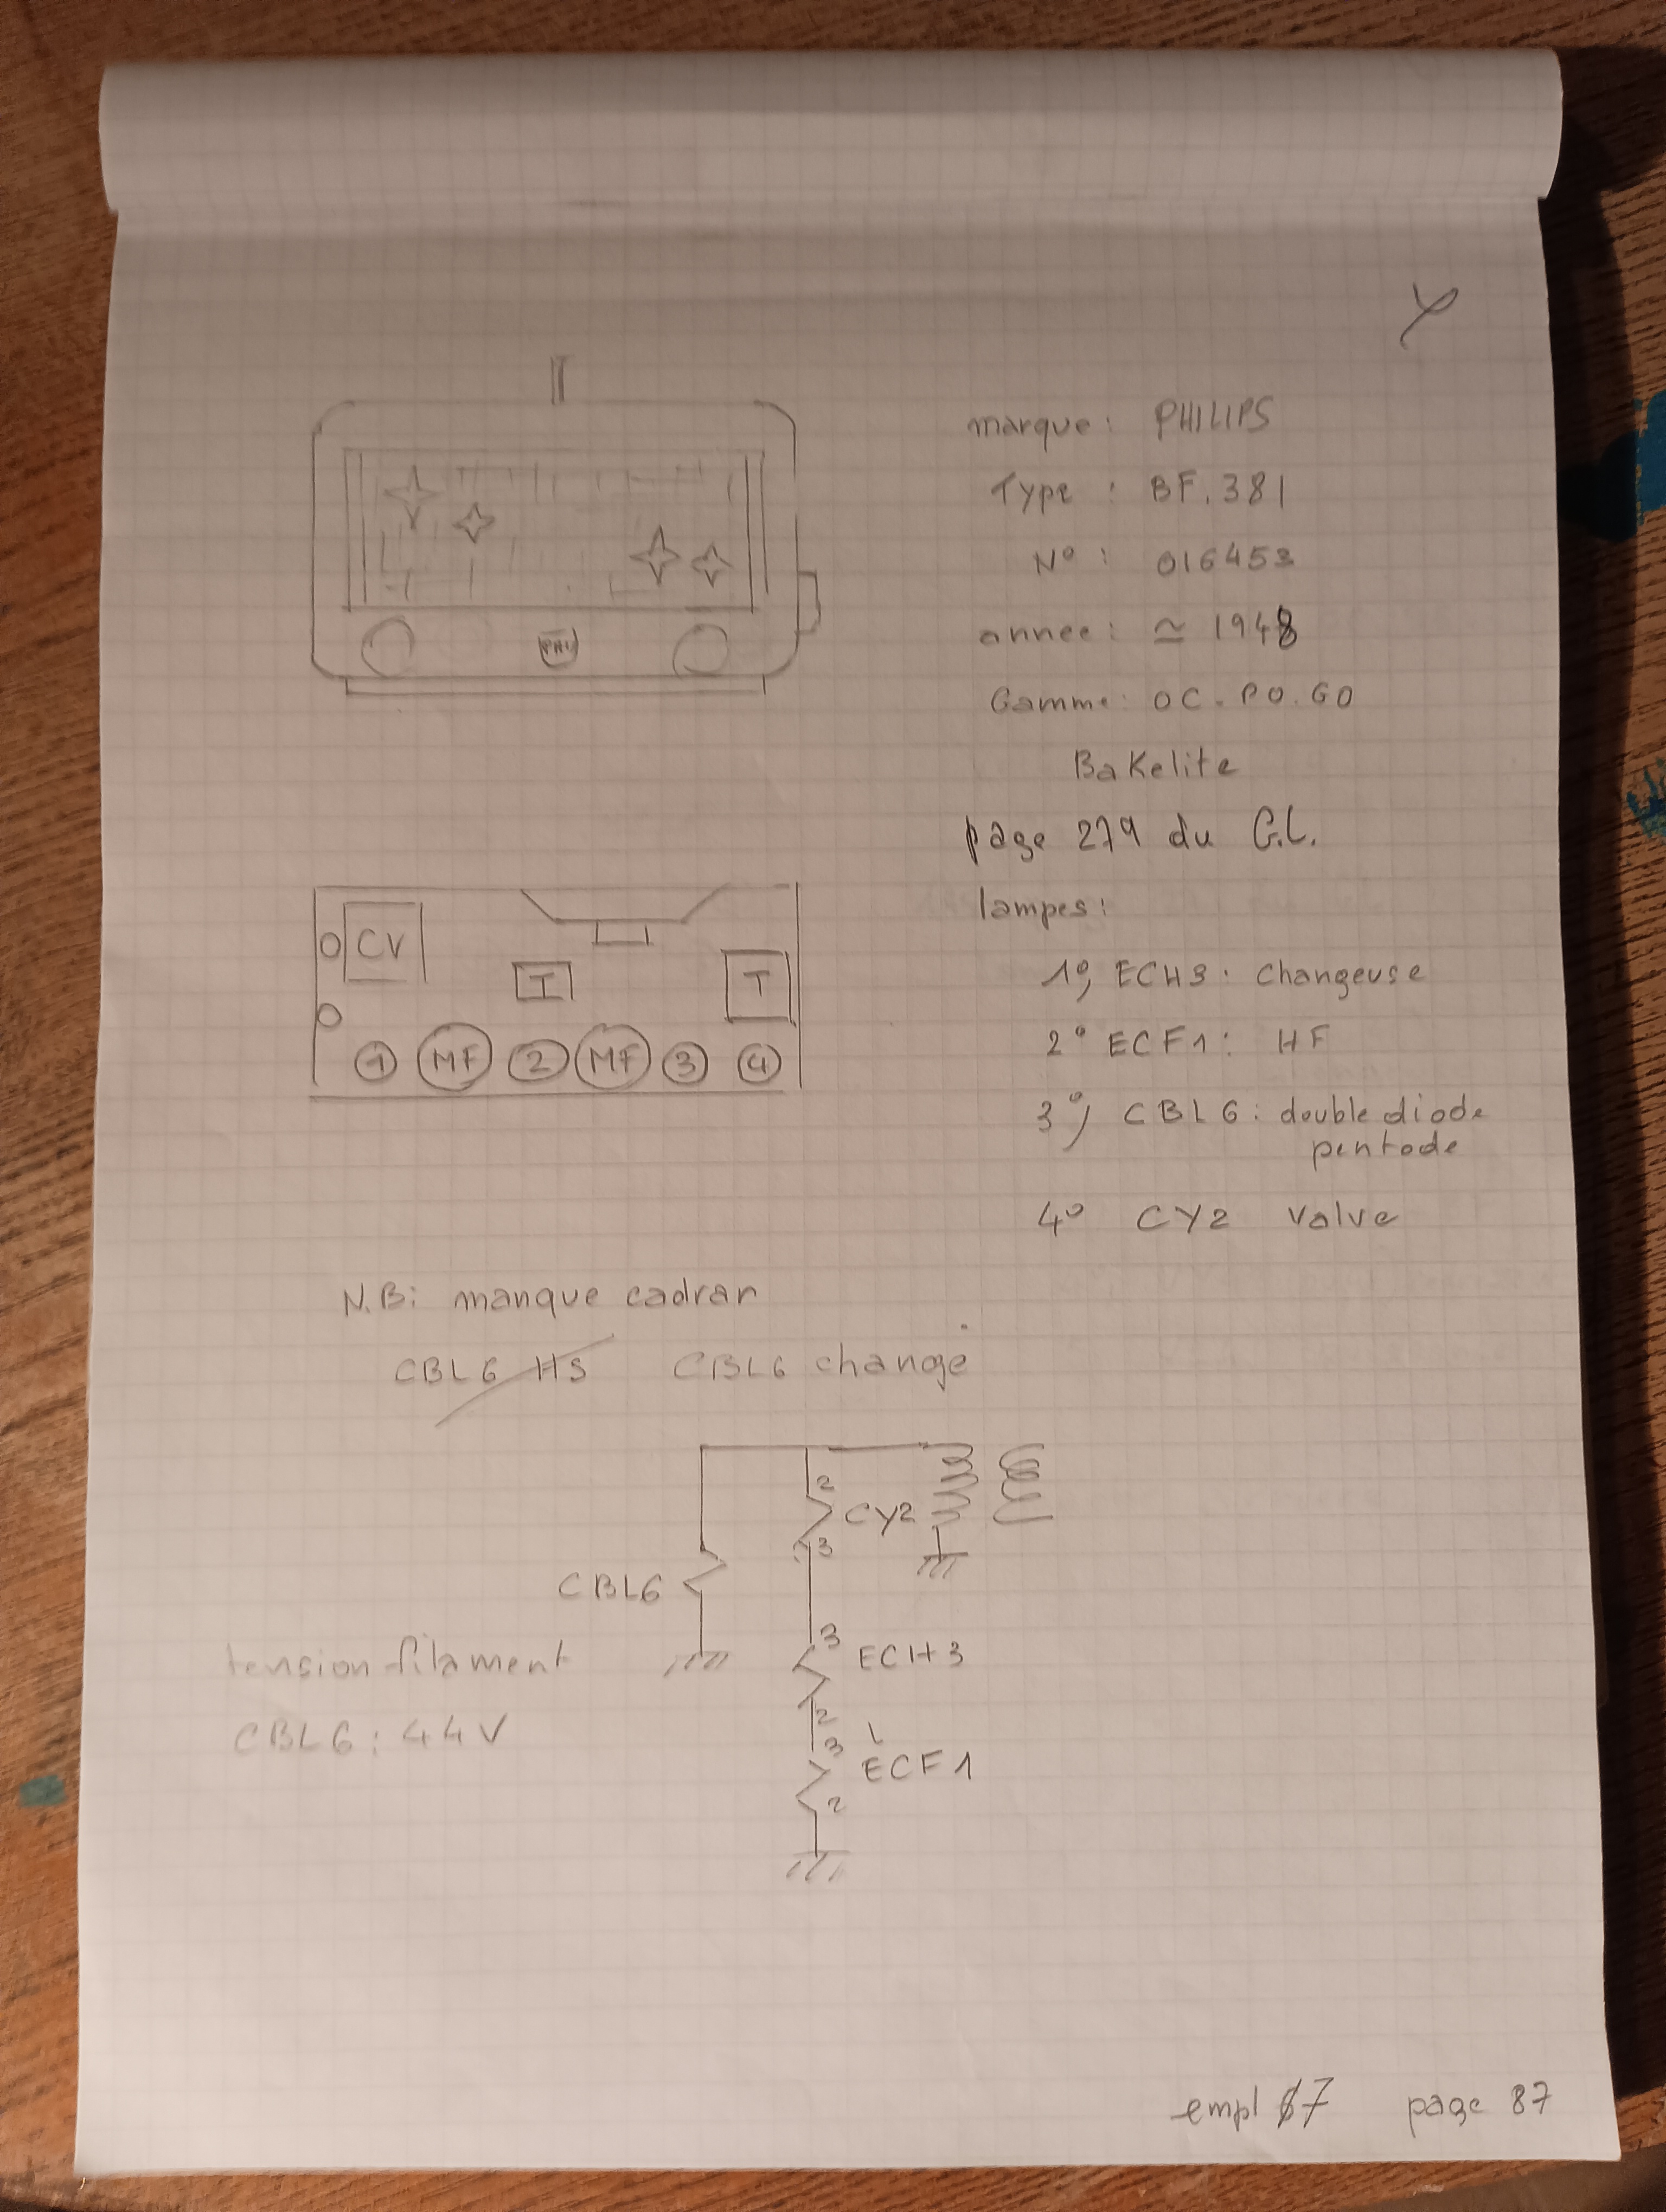 marque : PHILIPS
Type : BF.381
N° : 016453
annee : ≃ 1948
Gamme : OC. PO. GO
BaKelite
page 279 du G.L.
lampes :
1°) ECH3 : Changeuse
2° ECF1 : HF
3°) CBL6 : double diode
pentode
4° CY2 Valve
PHI
CV
T
T
1 MF 2 MF 3 4
N.B: manque cadran
CBL6 HS CBL6 change
2
CY2
3
CBL6
3
ECH3
2
3
ECF1
2
tension filament
CBL6 : 44V
empl 67 page 87